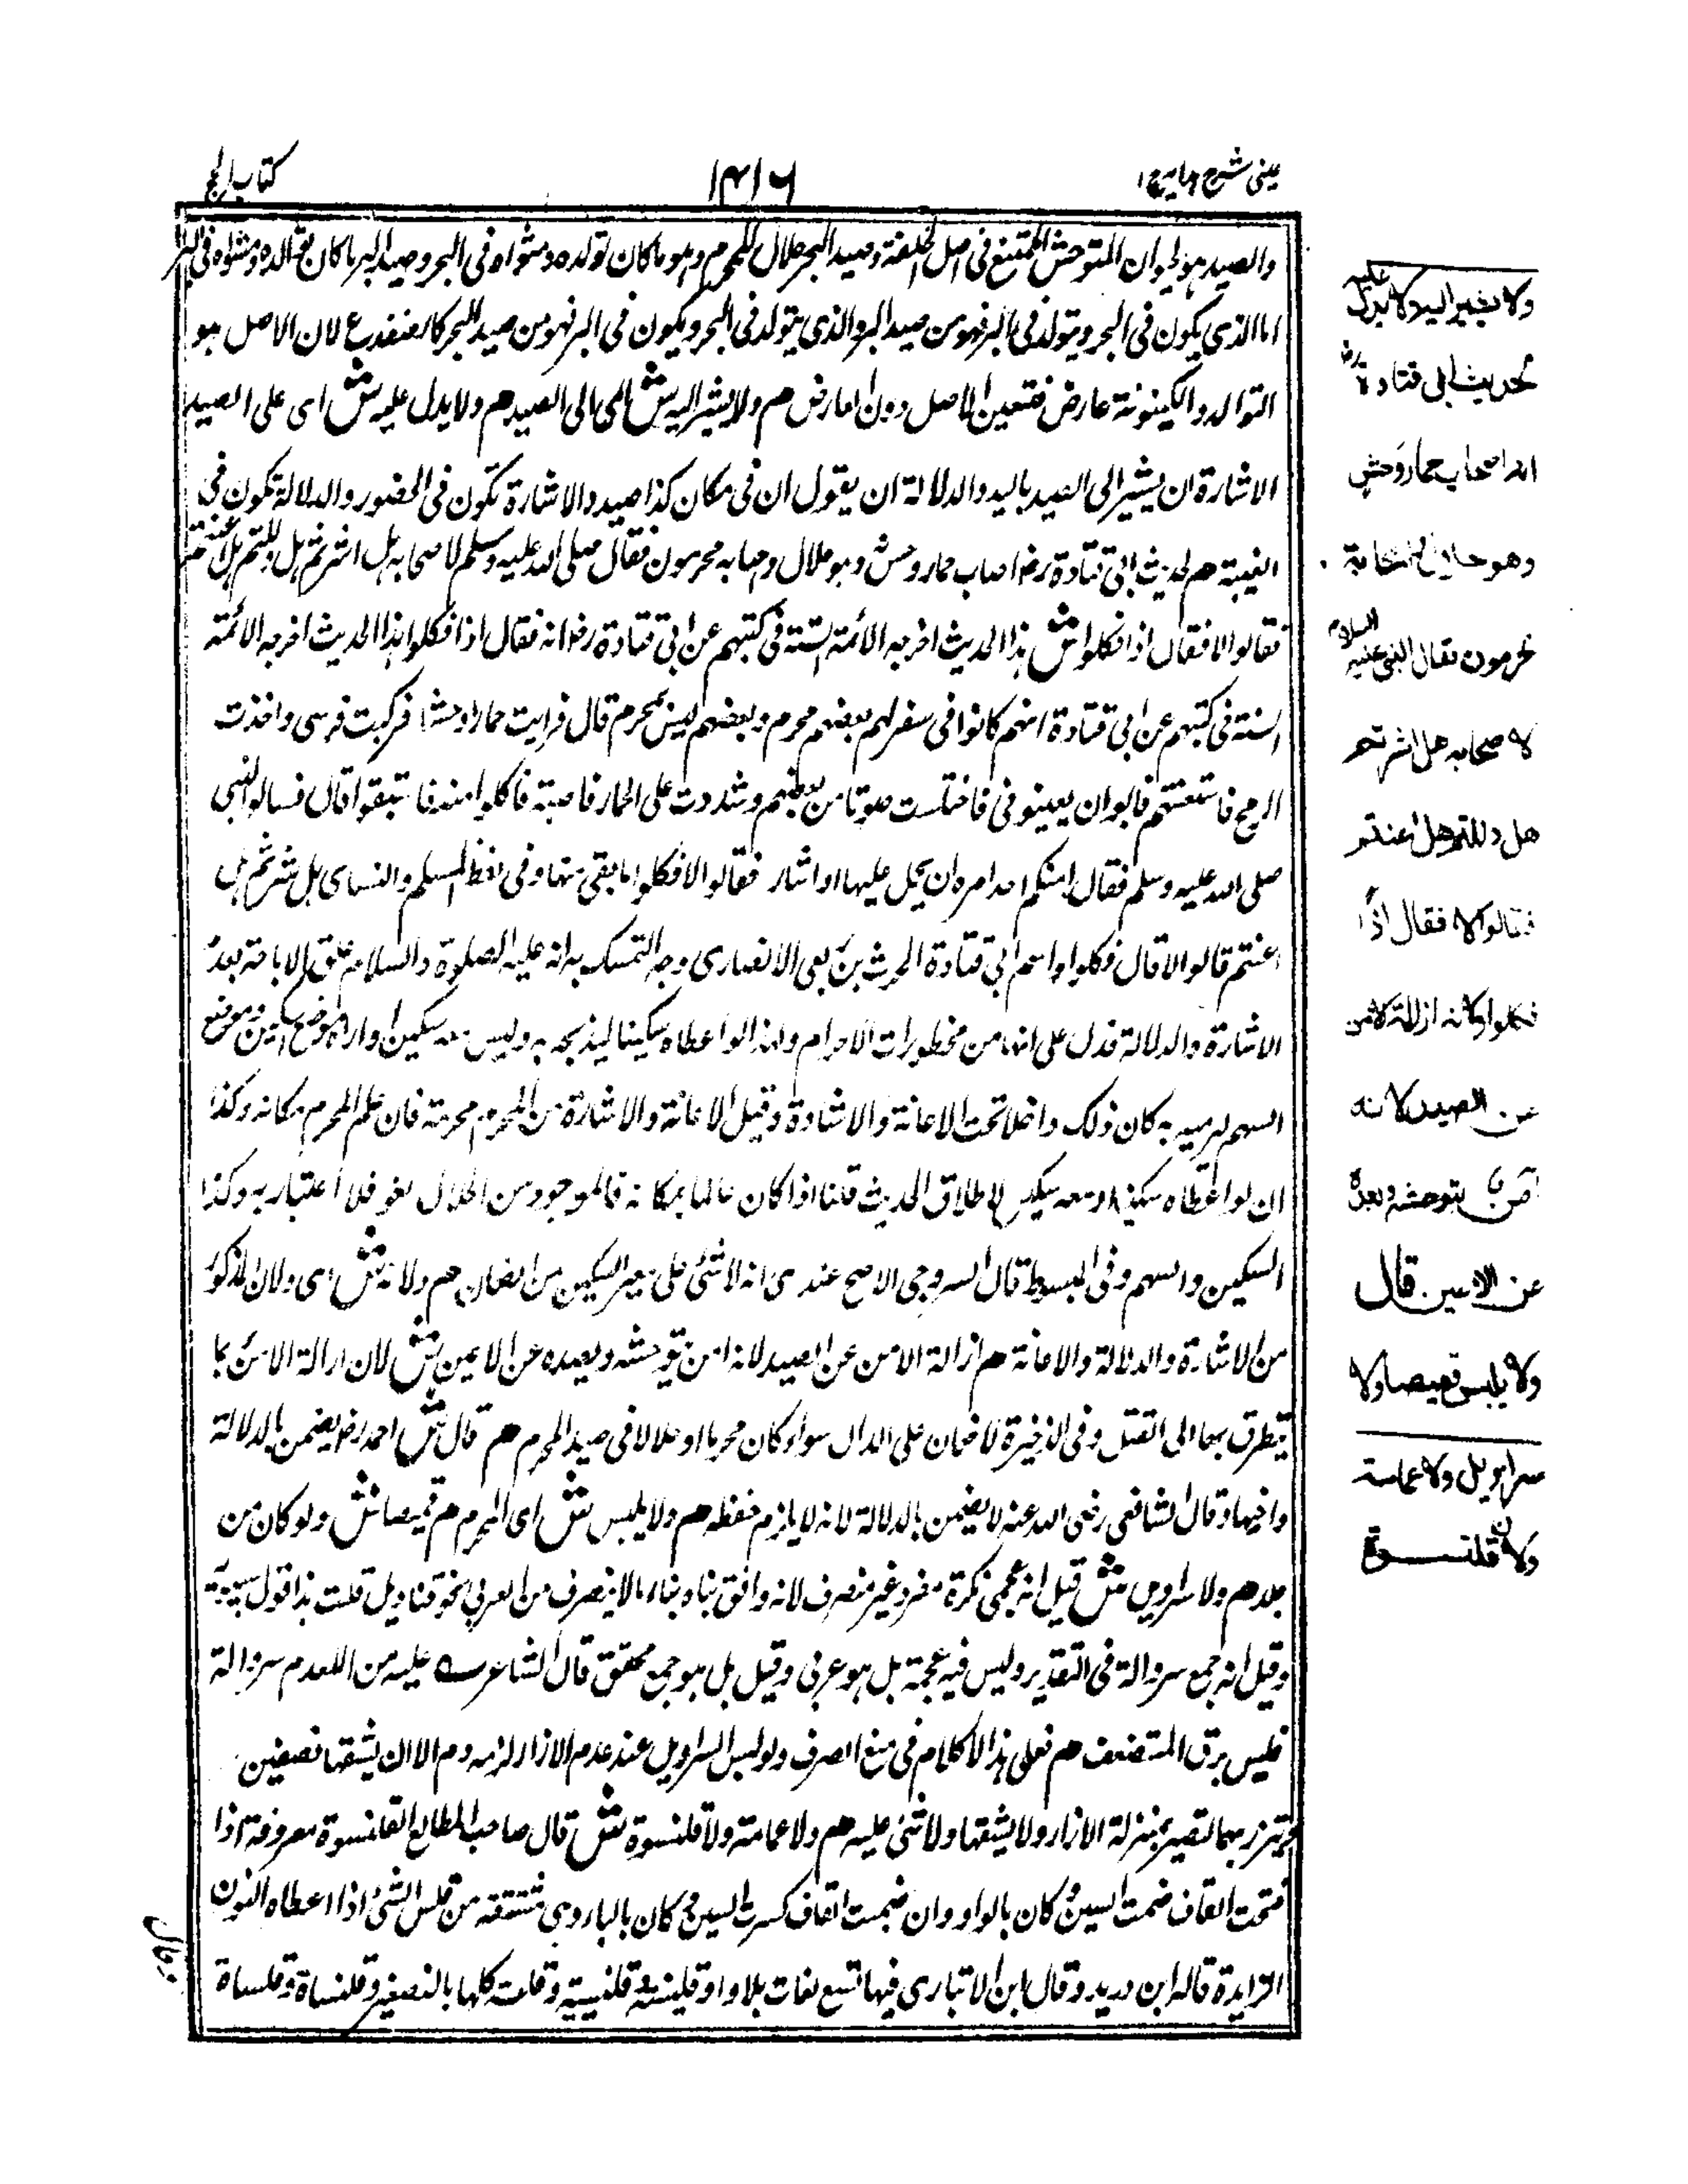 عینی شرح ہدایہ ج ۱
۱۴۱۶
کتاب الحج
والصيد هو الحيوان المتوحش الممتنع فى اصل الخلقة وصيد البحر حلال للمحرم وهو ما كان توالده ومثواه فى البحر وصيد البر ما كان توالده ومثواه فى البر
اما الذى يكون فى البحر ويتولد فى البر فهو من صيد البر والذى يتولد فى البحر ويكون فى البر فهو من صيد البحر كالضفدع لان الاصل هو
التوالد والكينونة عارض فتعين الاصل دون العارض م ولا يشير اليه ش اى الى الصيد هم ولا يدل عليه ش اى على الصيد
الاشارة ان يشير الى الصيد باليد والدلالة ان يقول ان فى مكان كذا صيد والاشارة تكون فى الحضور والدلالة تكون فى
الغيبة هم لحديث ابى قتادة رضـ اصاب حمار وحش وهو حلال واصحابه محرمون فقال صلى الله عليه وسلم لاصحابه هل اشرتم هل دللتم هل اعنتم
فقالوا لا فقال اذا فكلوا ش هذا الحديث اخرجه الأئمة الستة فى كتبهم عن ابى قتادة رضـ انه فقال اذا فكلوا هذا الحديث اخرجه الأئمة
الستة فى كتبهم عن ابى قتادة انهم كانوا فى سفر لهم بعضهم محرم وبعضهم ليس بمحرم قال فرايت حمارا وحشا فركبت فرسى واخذت
الرمح فاستعنتهم فابوا ان يعينونى فاختلست صوتا من بعضهم وشددت على الحمار فاصبته فاكلوا منه فاستبقوا قال فسالوا النبى
صلى الله عليه وسلم فقال امنكم احد امره ان يحمل عليها او اشار فقالوا لا فكلوا ما بقى منها وفى لفظ لمسلم والنساى هل اشرتم هل
اعنتم قالوا لا قال فكلوا واسم ابى قتادة الحرث بن ربعى الانصارى وجه التمسك به انه عليه الصلوة والسلام علق الاباحة بعدم
الاشارة والدلالة فدل على انها من محظورات الاحرام ولهذا لو اعطاه سكينا ليذبحه به وليس معه سكين او اراه موضع السكين او موضع
السهم ليرميه به كان ذلك داخلا تحت الاعانة والاشارة وقيل الاعانة والاشارة من المحرم محرمة فان علم المحرم مكانه وكذا
ان لو اعطاه سكينا ومعه سكين لاطلاق الحديث قلنا اذا كان عالما بمكانه فالموجود من الحلال لغو فلا اعتبار به وكذا
السكين والسهم وفى المبسوط قال السروجى الاصح عندى انه لا شئ على معير السكين من الضمان هم ولانه ش اى ولان المذكور
من الاشارة والدلالة والاعانة هم ازالة الامن عن الصيد لانه امن بتوحشه وبعده عن الاعين ش لان ازالة الامن بما
يتطرق بها الى القتل وفى الذخيرة لا ضمان على الدال سواء كان محرما او حلالا فى صيد المحرم هم قال ش احمد رضـ يضمن بالدلالة
وقال الشافعى رضى الله عنه لا يضمن بالدلالة لانه لا يلزم حفظه هم ولا يلبس ش اى المحرم هم قميصا ش ولو كان من
جلد هم ولا سراويل ش قيل انه عجمى نكرة مفرد غير منصرف لانه وافق بناه بناء ما لا ينصرف من العربى نحو قناديل قلت هذا قول سيبويه
وقيل انه جمع سروالة فى التقدير وليس فيه عجمة بل هو عربى وقيل بل هو جمع محقق قال الشاعر عليه من اللعدم سروالة
فليس يرق المتضعف هم فعلى هذا لا كلام فى منع الصرف ولو لبس السراويل عند عدم الازار لزمه دم الا ان يشقها نصفين
فيتزر بها لتصير بمنزلة الازار ولا يشقها ولا شئ عليه هم ولا عمامة ولا قلنسوة ش قال صاحب المطالع القلنسوة معروفة اذا
فتحت القاف ضمت السين وكان بالواو وان ضمت القاف كسرت السين وكان بالياء وهى مشتقة من قلس الشئ اذا اعطاه النون
الزايدة قاله ابن دريد وقال ابن الانبارى فيها تسع لغات بلا واو قلينسة قلنسية وقلت كلها بالتصغير وقلنساة وقلساة
ولا يشير اليه ولا يدل عليه
لحديث ابى قتادة رضـ
انه اصاب حمار وحش
وهو حلال واصحابه
محرمون فقال النبى عليه السلام
لاصحابه هل اشرتم
هل دللتم هل اعنتم
فقالوا لا فقال اذًا
فكلوا ولانه ازالة الامن
عن الصيد لانه
امن بتوحشه وبعده
عن الاعين قال
ولا يلبس قميصا ولا
سراويل ولا عمامة
ولا قلنسوة